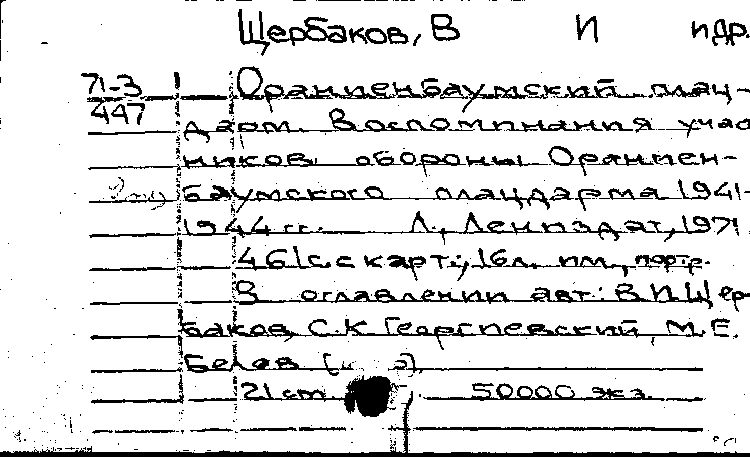 Щербаков, В И и др.
71-3
447
Ораниенбаумский плац-
дарм. Воспоминания учас
ников обороны Ораниен-
баумского плацдарма 1941-
1944 гг. Л., Лениздат, 1971
461 с. с карт.; 16 л. ил., портр.
В оглавлении авт.: В.И.Щер
баков, С.К Георгиевский, М.Е.
Белов
21 cm 50000 экз.